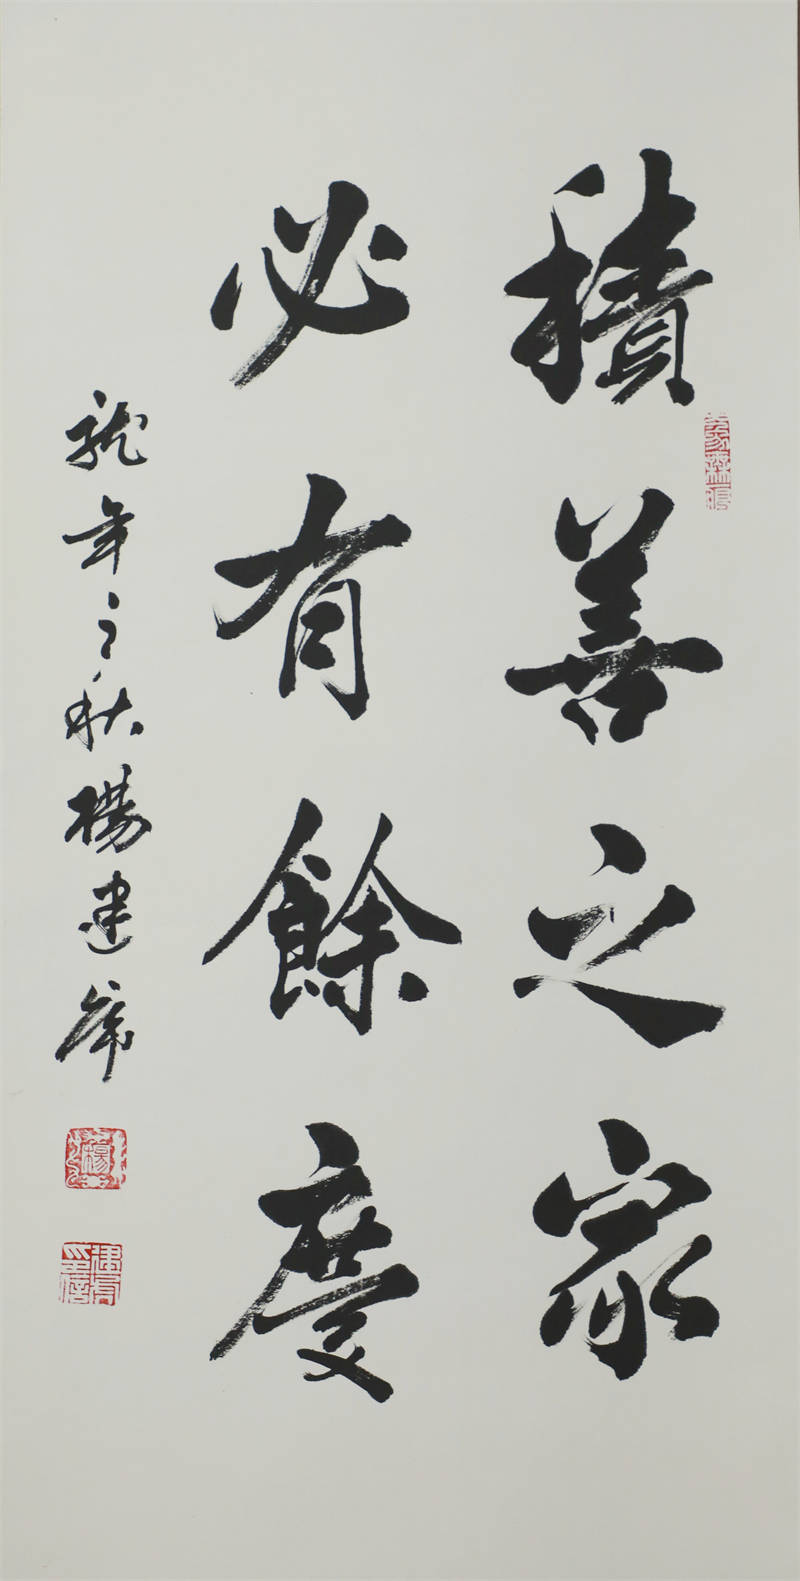 積善之家
必有餘慶
龍年之秋楊建